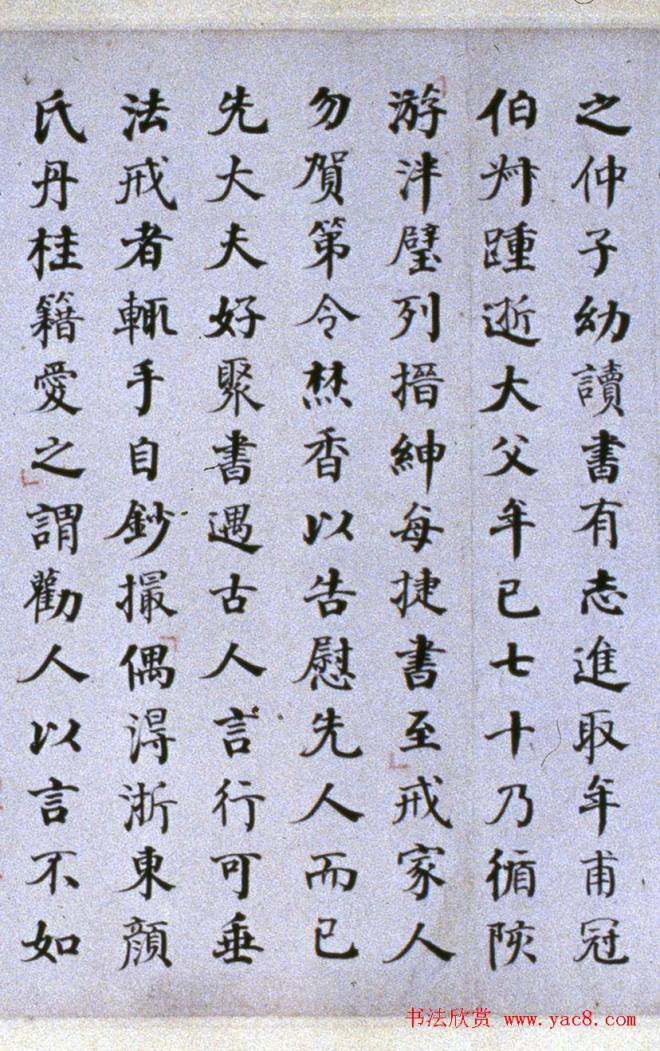 之仲子幼讀書有志進取年甫冠
伯叔踵逝大父年已七十乃循陔
游泮璧列搢紳每捷書至戒家人
勿賀第令焚香以告慰先人而已
先大夫好聚書遇古人言行可垂
法戒者輒手自鈔撮偶得浙東顏
氏丹桂籍愛之謂勸人以言不如
书法欣赏 www.yac8.com